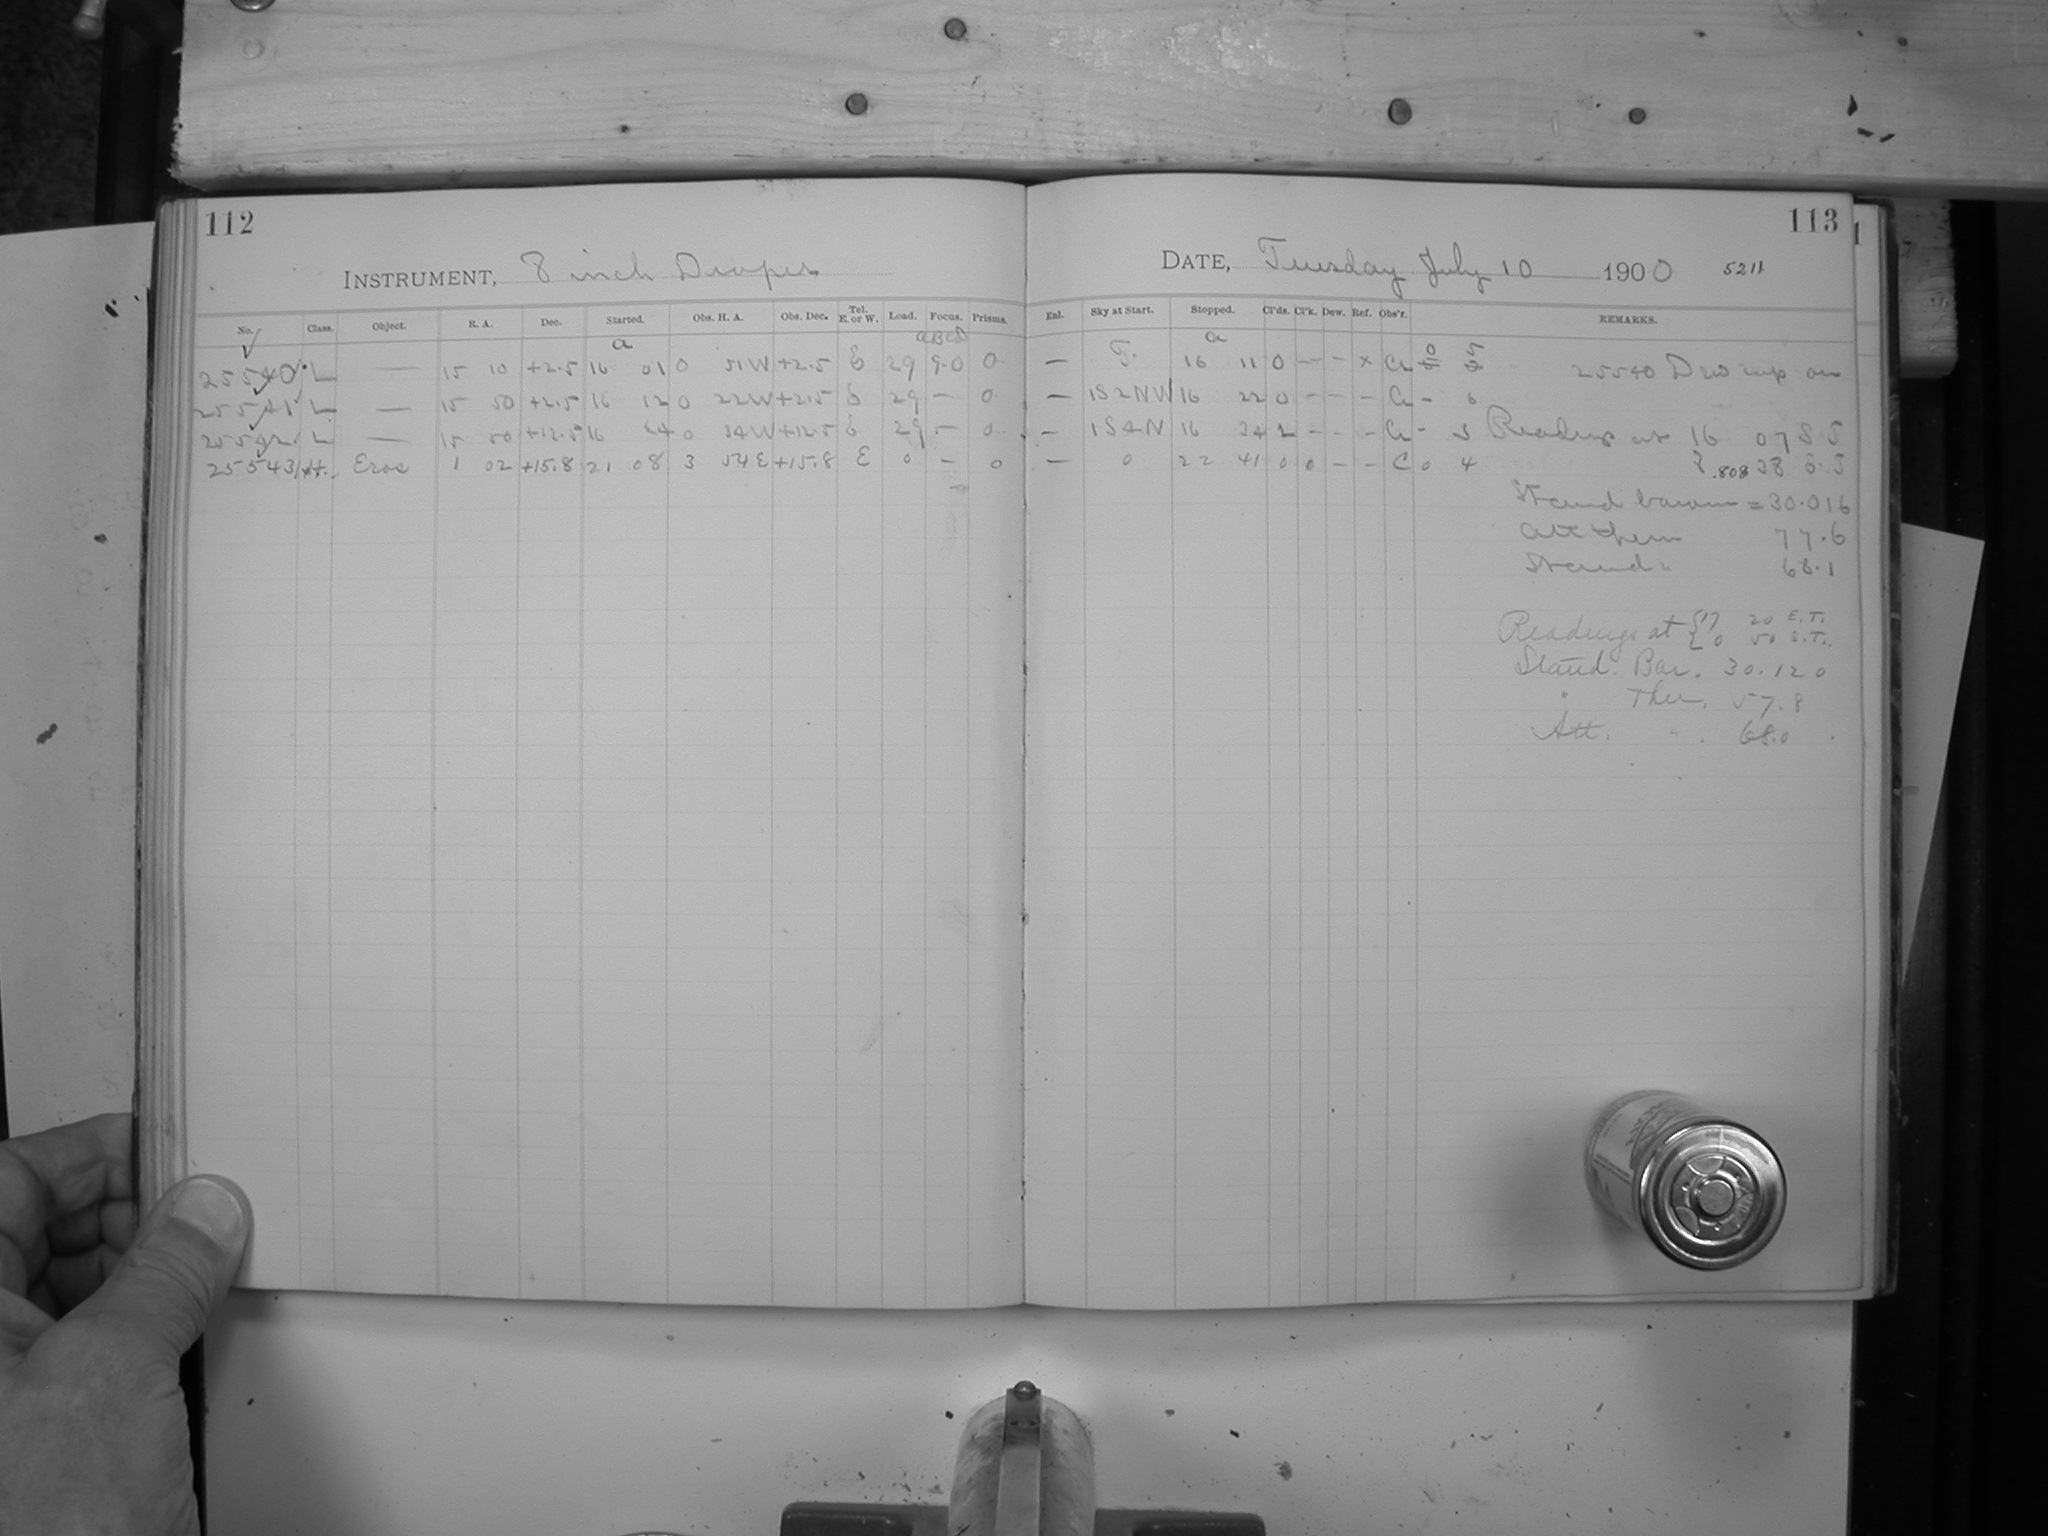 112
INSTRUMENT, 8 inch Draper
No. Class. Object. R. A. Dec. Started. Obs. H. A. Obs. Dec. Tel. E. or W. Load. Focus. Prisms.
a aBCD
25540 L — 15 10 +2.5 16 01 0 51W +2.5 E 29 9.0 0
25541 L — 15 50 +2.5 16 12 0 22W +2.5 E 29 — 0
25542 L — 15 50 +12.5 16 24 0 34W +12.5 E 29 — 0
25543 H. Eros 1 02 +15.8 21 08 3 54E +15.8 E 0 — 0
113
DATE, Tuesday July 10 1900 5211
Enl. Sky at Start. Stopped. Cl'ds. Cl'k. Dew. Ref. Obs'r. REMARKS.
a
— T. 16 11 0 — — × 25540 Dew cap on
— 1S2NW 16 22 0 - - - - 6
— 1S4N 16 34 2 - - - - 5 Readings at 16 07 S.T
— 0 22 41 0 0 - - C 0 4 .808 38
Stand barom = 30.016
Att therm 77.6
Stand " 68.1
Readings at {17 20 E.T.
{0 50 S.T.
Stand. Bar. 30.120
" Ther. 57.8
Att. " . 68.0